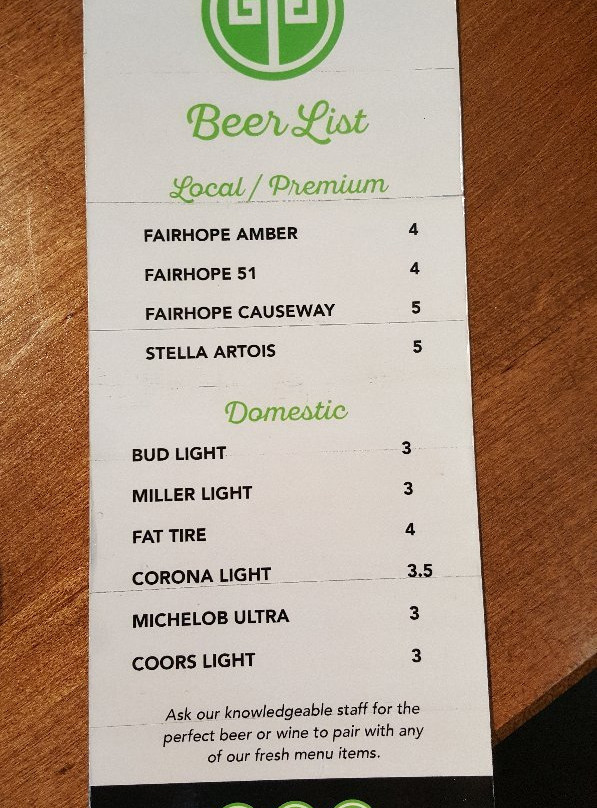 Beer List
Local / Premium
FAIRHOPE AMBER 4
FAIRHOPE 51 4
FAIRHOPE CAUSEWAY 5
STELLA ARTOIS 5
Domestic
BUD LIGHT 3
MILLER LIGHT 3
FAT TIRE 4
CORONA LIGHT 3.5
MICHELOB ULTRA 3
COORS LIGHT 3
Ask our knowledgeable staff for the
perfect beer or wine to pair with any
of our fresh menu items.